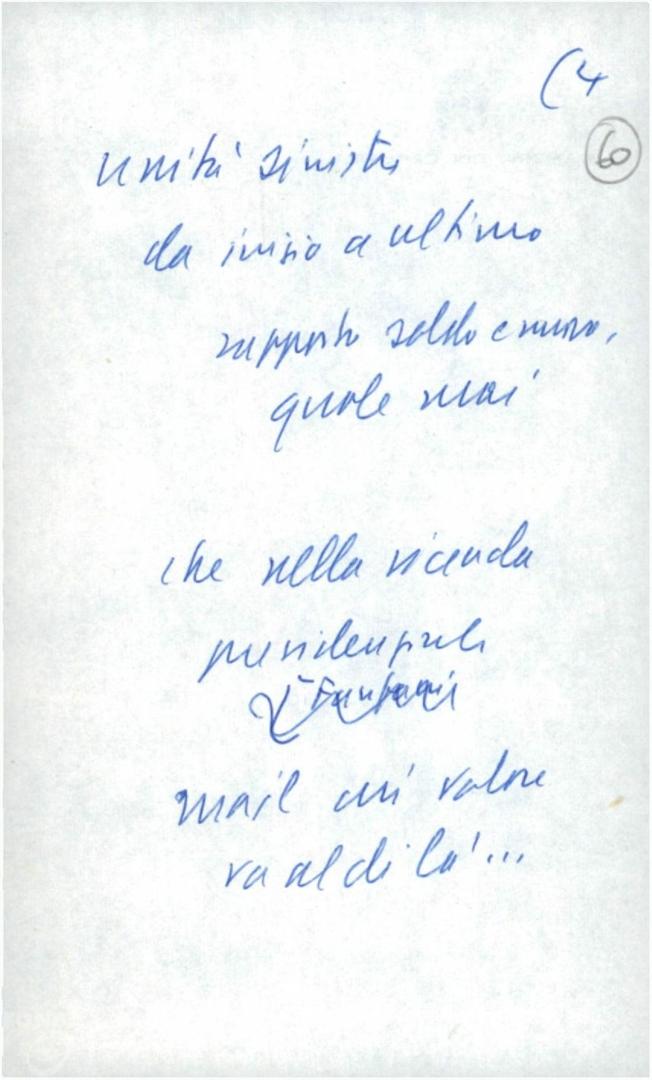 (4
60
unità sinistra
da inizio a ultimo
rapporto saldo e nuovo,
quale mai
che nella vicenda
presidenziale
ma il cui valore
va al di là...